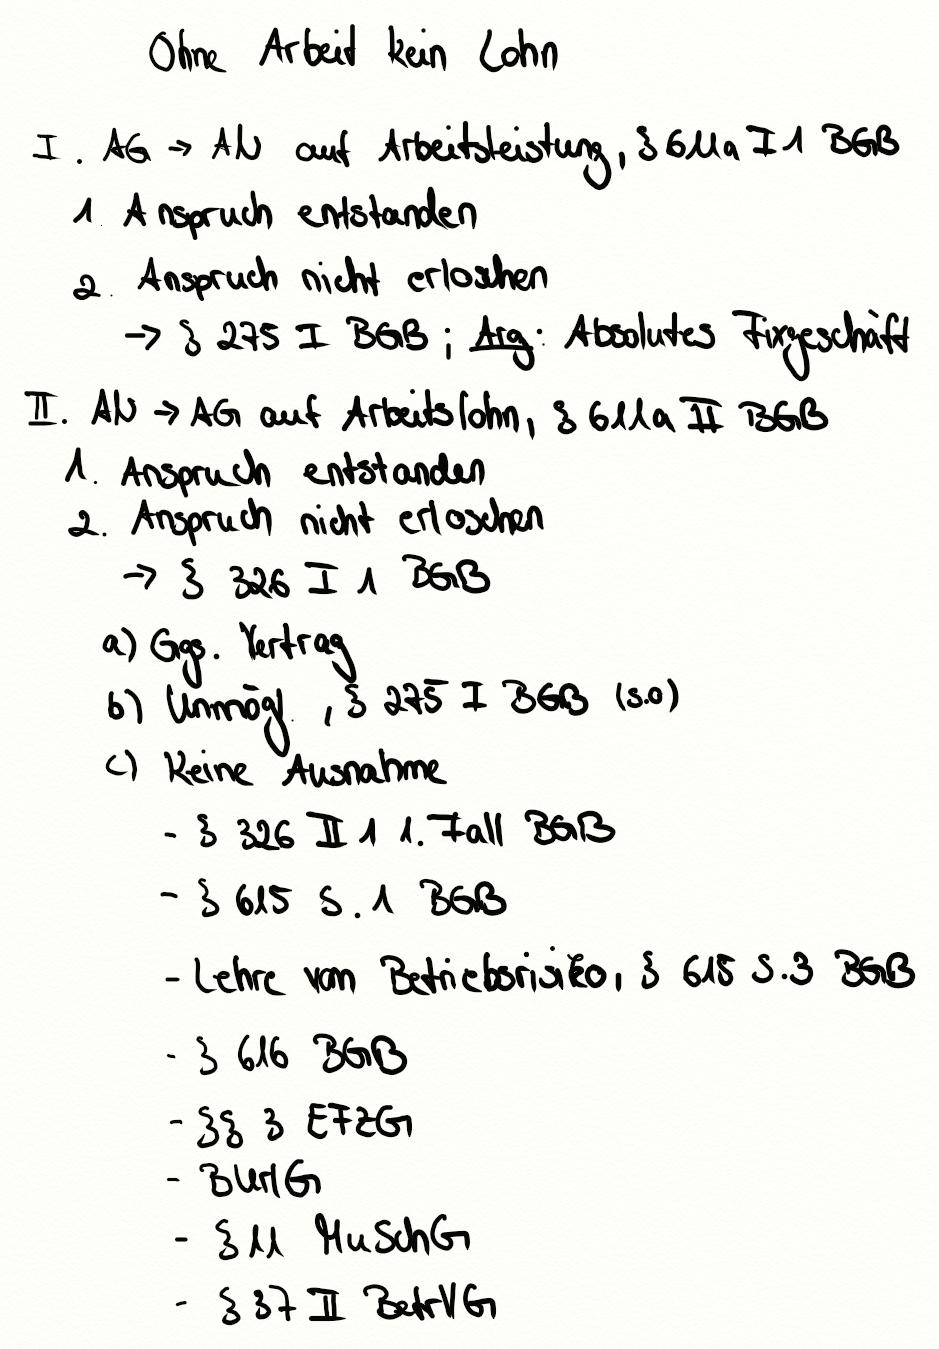 Ohne Arbeit kein Lohn
I. AG → AN auf Arbeitsleistung, § 611a I 1 BGB
1. Anspruch entstanden
2. Anspruch nicht erloschen
→ § 275 I BGB ; Arg: Absolutes Fixgeschäft
II. AN → AG auf Arbeitslohn, § 611a II BGB
1. Anspruch entstanden
2. Anspruch nicht erloschen
→ § 326 I 1 BGB
a) Ggs. Vertrag
b) Unmögl. , § 275 I BGB (s.o)
c) Keine Ausnahme
- § 326 II 1 1. Fall BGB
- § 615 S. 1 BGB
- Lehre vom Betriebsrisiko, § 615 S.3 BGB
- § 616 BGB
- §§ 3 EFZG
- BUrlG
- § 11 MuSchG
- § 37 II BetrVG